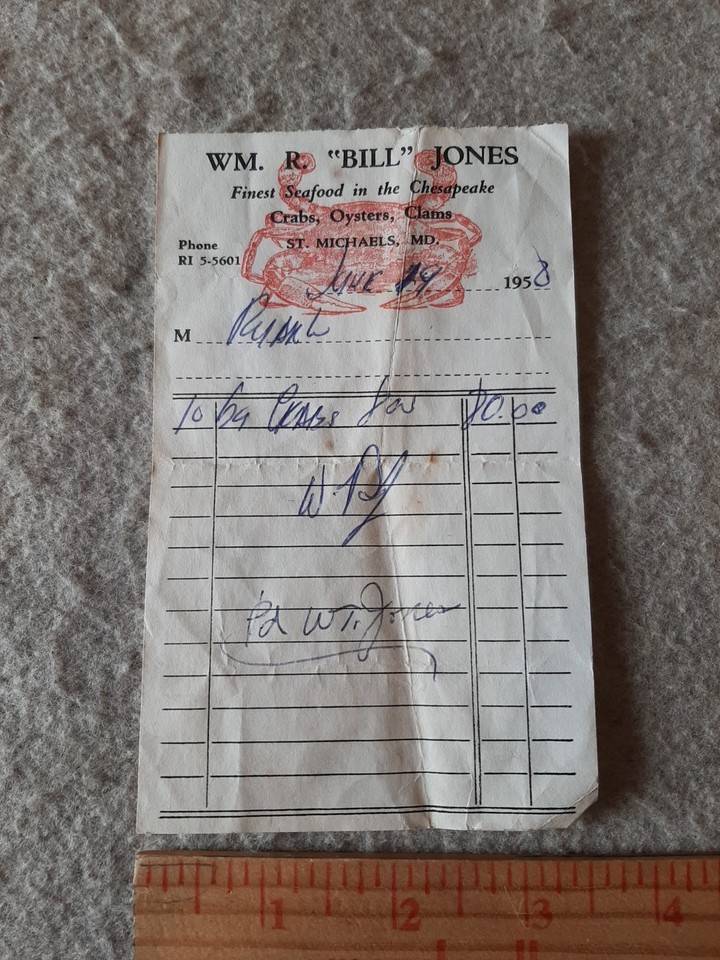 WM. R. "BILL" JONES
Finest Seafood in the Chesapeake
Crabs, Oysters, Clams
ST. MICHAELS, MD.
Phone
RI 5-5601
June 24 1958
M
10 Ba Crabs for 80.00
Pd W.R. Jones
1 2 3 4